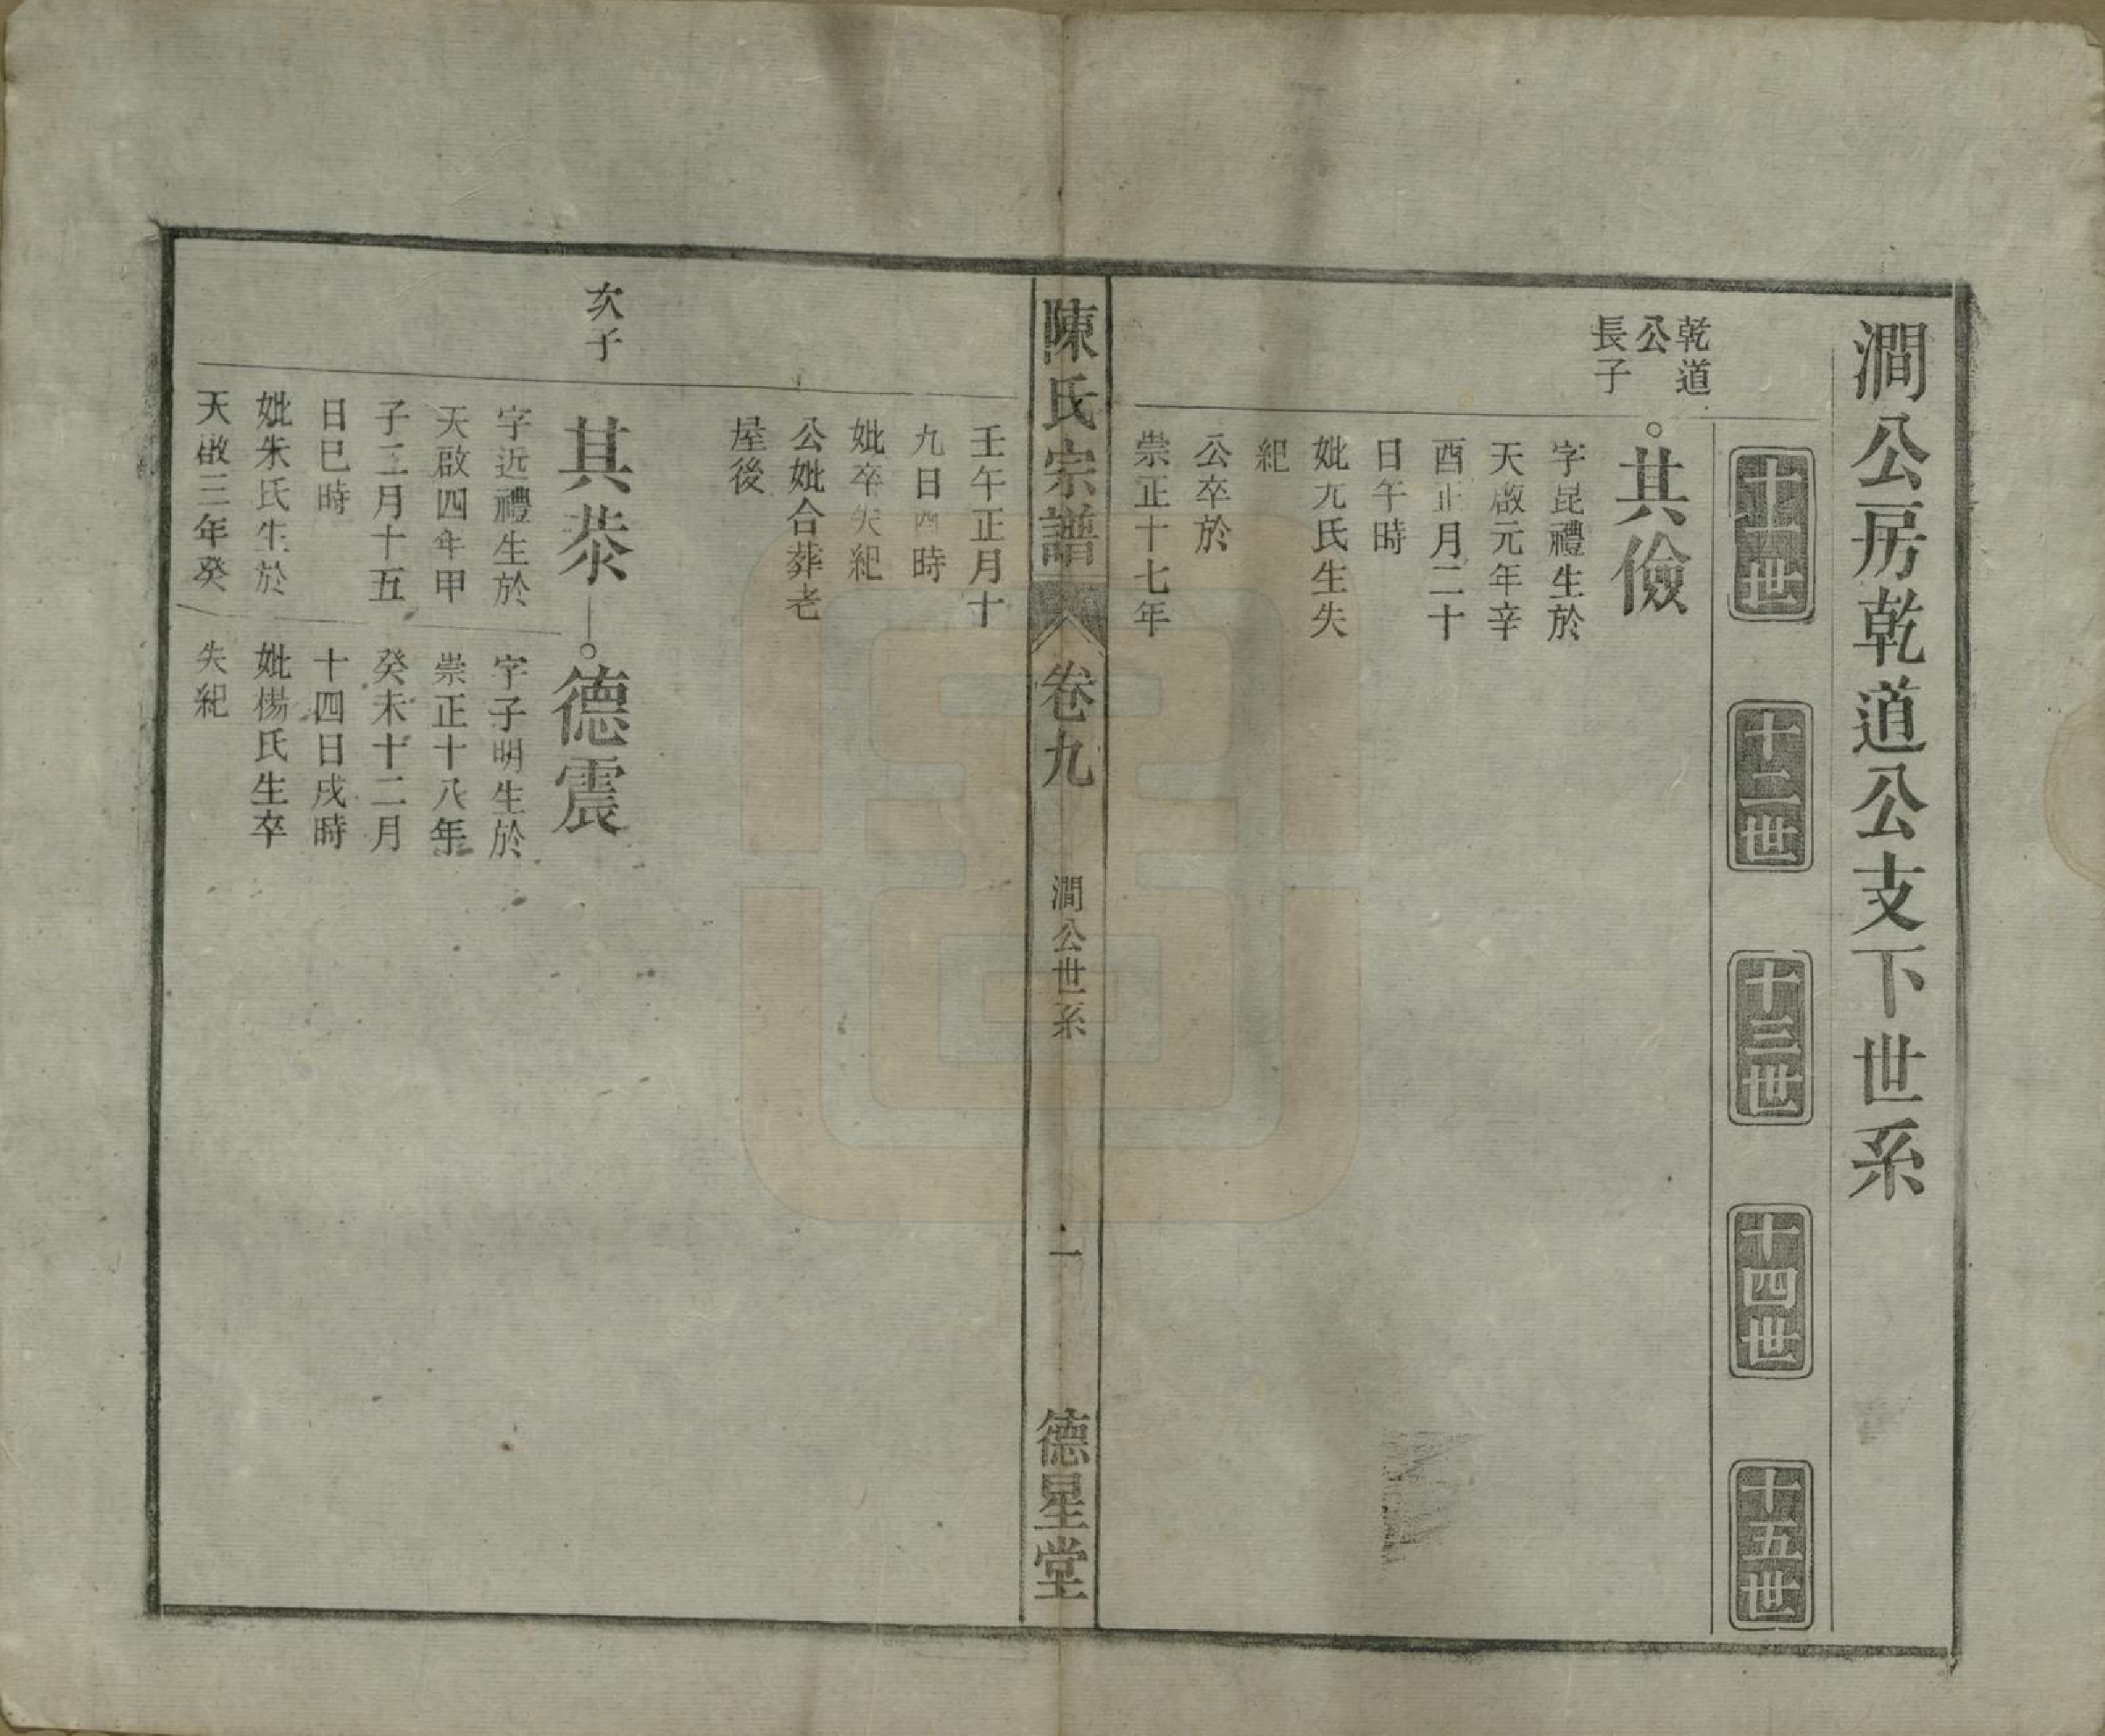 澗公房乾道公支下世系
十一世
十二世
十三世
十四世
十五世
乾道
公
長子
其儉
字昆禮生於
天啟元年辛
酉正月二十
日午時
妣尢氏生失
紀
公卒於
崇正十七年
陳氏宗譜
卷九
澗公世系
一
德星堂
壬午正月十
九日酉時
妣卒失紀
公妣合葬老
屋後
次子
其恭
字近禮生於
天啟四年甲
子二月十五
日巳時
妣朱氏生於
天啟三年癸
德震
字子明生於
崇正十八年
癸未十二月
十四日戌時
妣楊氏生卒
失紀